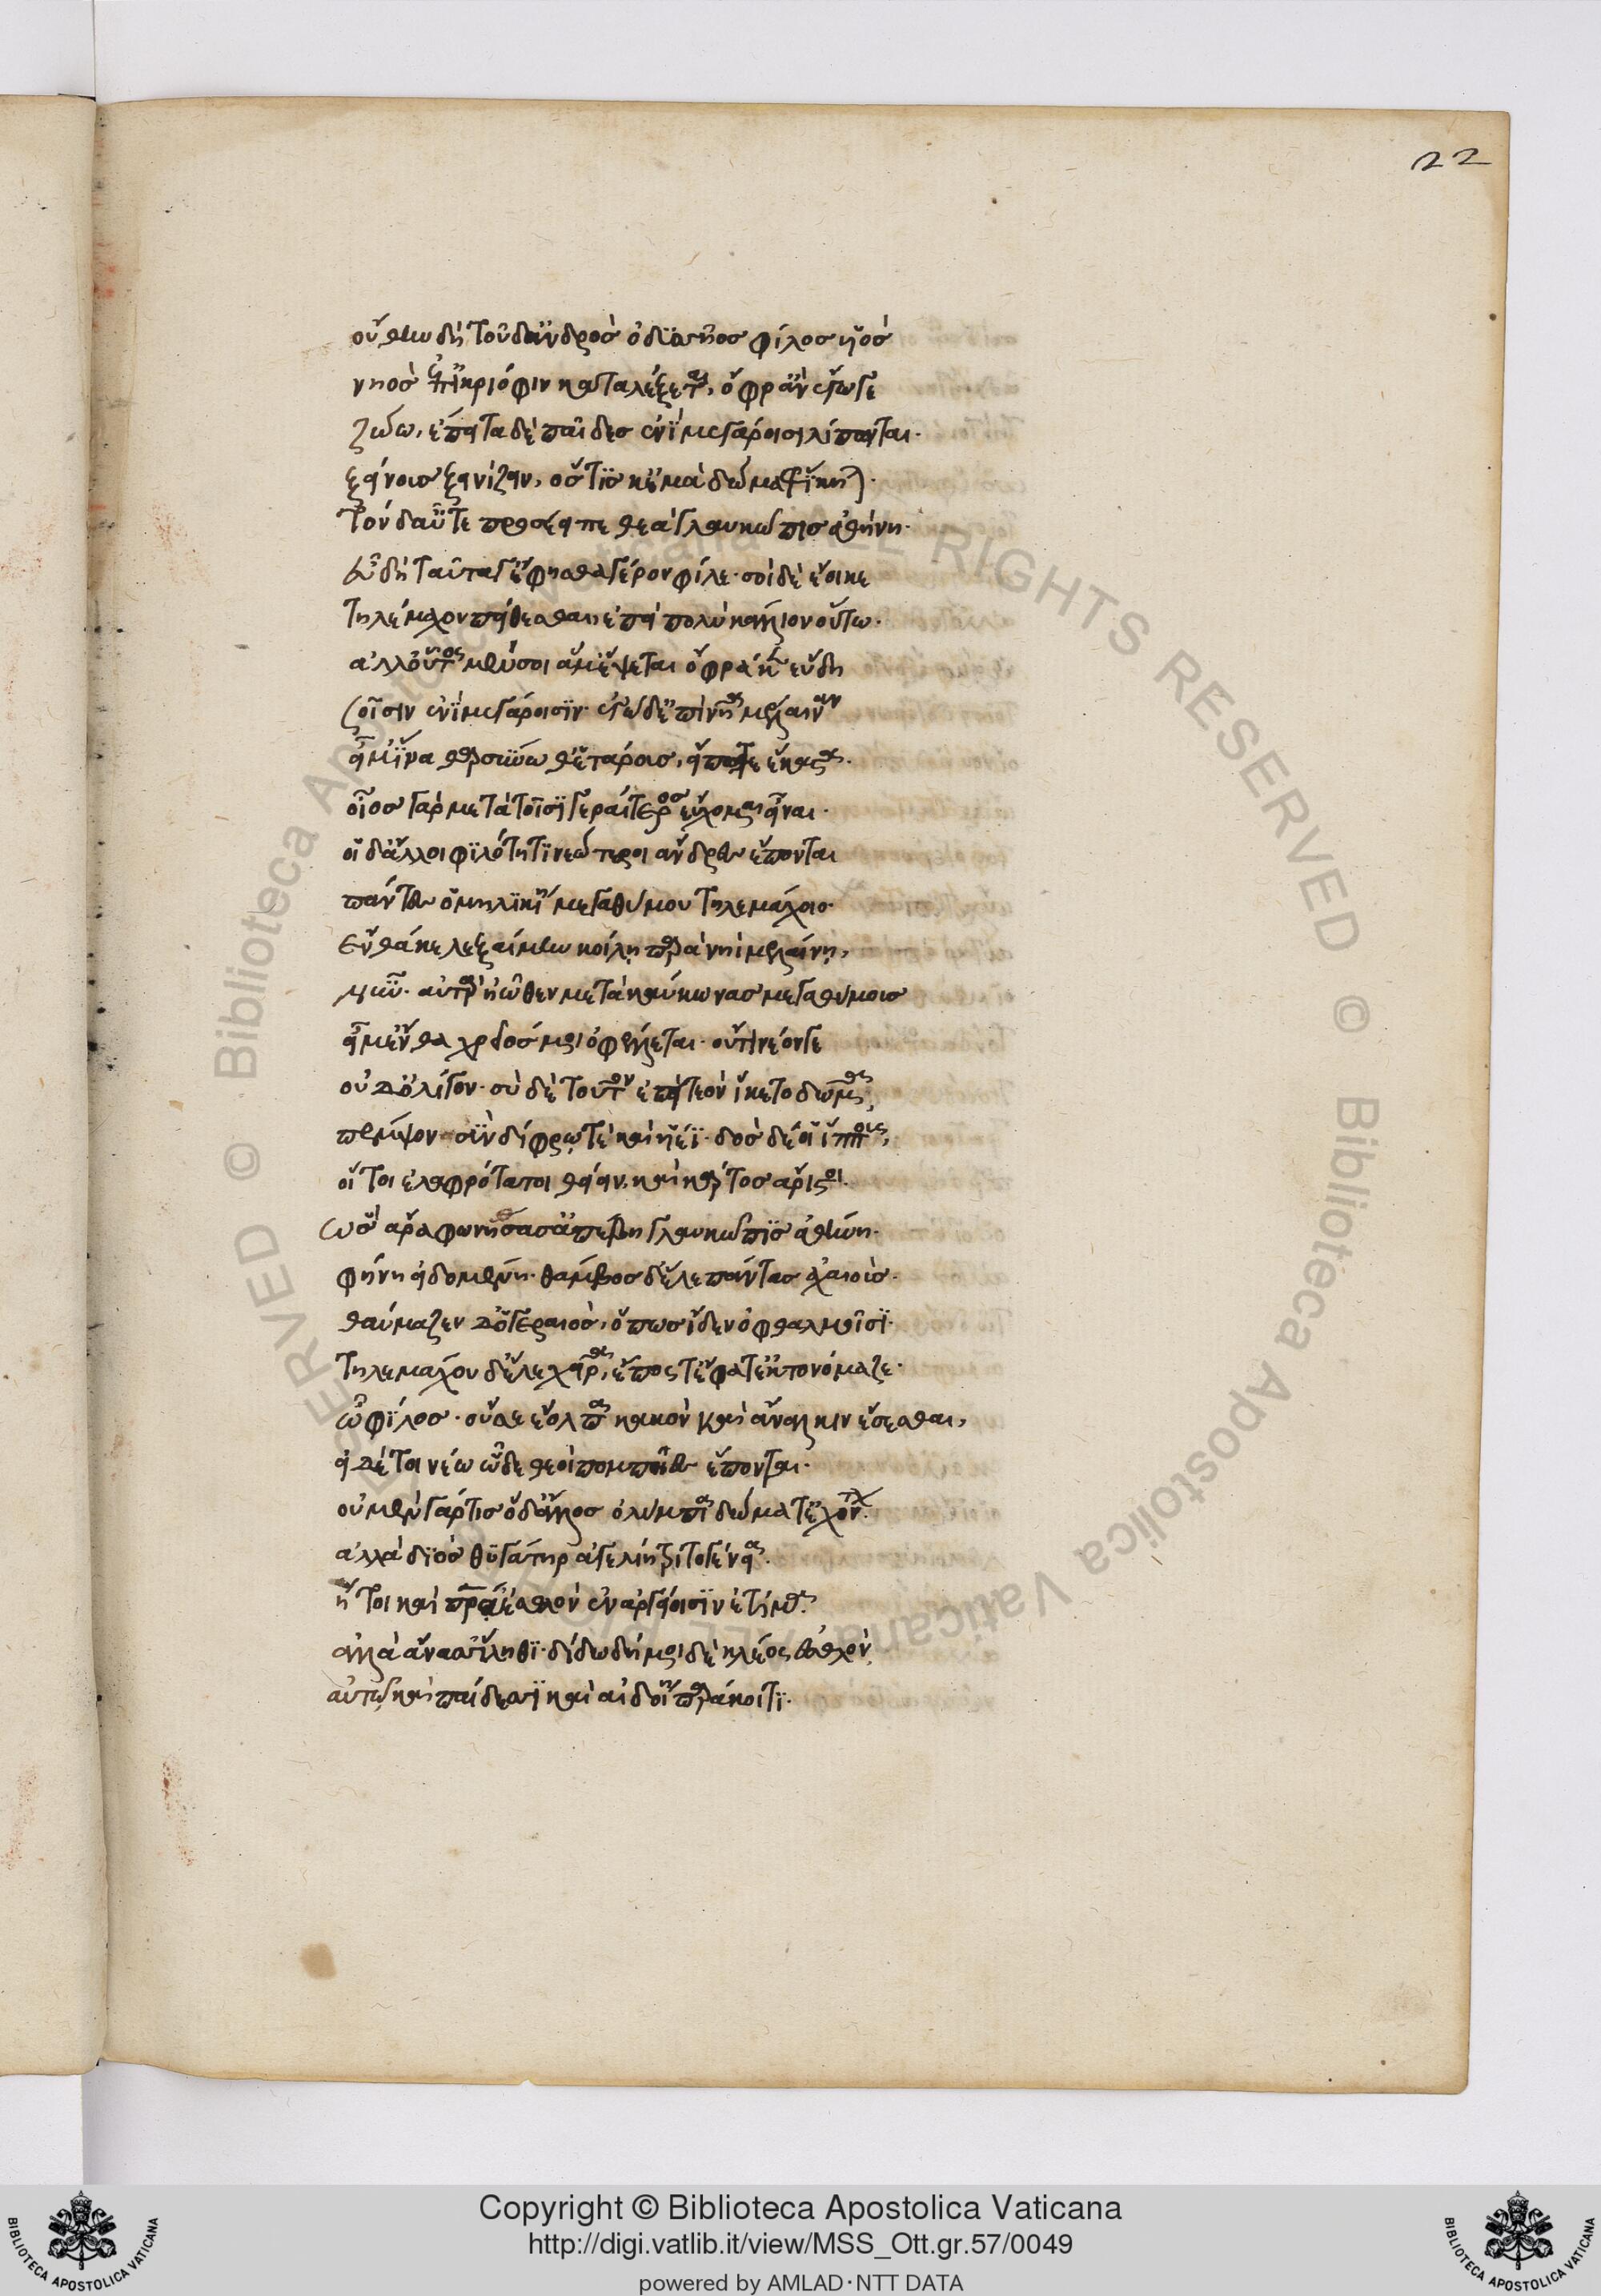 22
οὔ θην δὴ τοῦδ' ἀνδρὸς ὀδυσσῆος φίλος υἱὸς
νηὸς ἐπ' ἰκριόφιν καταλέξεται, ὄφρ' ἂν ἐγώ γε
ζώω, ἔπειτα δὲ παῖδες ἐνὶ μεγάροισι λίπωνται.
ξείνους ξεινίζειν, ὅς τίς κ' ἐμὰ δώμαθ' ἵκηται.
Τὸν δ' αὖτε προσέειπε θεὰ γλαυκῶπις ἀθήνη.
εὖ δὴ ταῦτά γ' ἔφησθα γέρον φίλε. σοὶ δὲ ἔοικε
τηλέμαχον πείθεσθαι ἐπεὶ πολὺ κάλλιον οὕτω.
ἀλλ' οὗτος μὲν σοὶ ἅμ' ἕψεται ὄφρά κεν εὕδῃ
σοῖσιν ἐνὶ μεγάροισιν. ἐγὼ δ' ἐπὶ νῆα μέλαιναν
εἶμ' ἵνα θαρσύνω θ' ἑτάρους, εἴπω τε ἕκαστα.
οἶος γὰρ μετὰ τοῖσι γεραίτερος εὔχομαι εἶναι.
οἱ δ' ἄλλοι φιλότητι νεώτεροι ἄνδρες ἕπονται
πάντες ὁμηλικίη μεγαθύμου τηλεμάχοιο.
ἔνθά κε λεξαίμην κοίλῃ παρὰ νηὶ μελαίνῃ,
νῦν. ἀτὰρ ἠῶθεν μετὰ καύκωνας μεγαθύμους
εἶμ' ἔνθα χρεῖός μοι ὀφέλλεται. οὔτι νέον γε
οὐδ' ὀλίγον. σὺ δὲ τοῦτον ἐπεὶ τεὸν ἵκετο δῶμα,
πέμψον σὺν δίφρῳ τε καὶ υἱέϊ. δὸς δέ οἱ ἵππους,
οἵ τοι ἐλαφρότατοι θείειν, καὶ κάρτος ἄριστοι.
ὣς ἄρα φωνήσασ' ἀπέβη γλαυκῶπις ἀθήνη.
φήνῃ εἰδομένη. θάμβος δ' ἕλε πάντας ἀχαιούς.
θαύμαζεν δ' ὁ γεραιὸς, ὅπως ἴδεν ὀφθαλμοῖσι.
τηλεμάχου δ' ἕλε χεῖρα, ἔπος τ' ἔφατ' ἔκ τ' ὀνόμαζε.
ὦ φίλος. οὔ σε ἔολπα κακὸν καὶ ἄναλκιν ἔσεσθαι,
εἰ δέ τοι νέω ὧδε θεοὶ πομπῆες ἕπονται.
οὐ μὲν γάρ τις ὅδ' ἄλλος ὀλύμπια δώματ' ἐχόντων.
ἀλλὰ διὸς θυγάτηρ ἀγελείη τριτογένεια.
ἥ τοι καὶ πατέρ' ἐσθλὸν ἐν ἀργείοισιν ἐτίμα.
ἀλλὰ ἄνασσ' ἵληθι. δίδωθι δή μοι δὲ κλέος ἐσθλὸν,
αὐτῷ καὶ παίδεσσι καὶ αἰδοίη παρακοίτι.
Copyright © Biblioteca Apostolica Vaticana
http://digi.vatlib.it/view/MSS_Ott.gr.57/0049
powered by AMLAD·NTT DATA